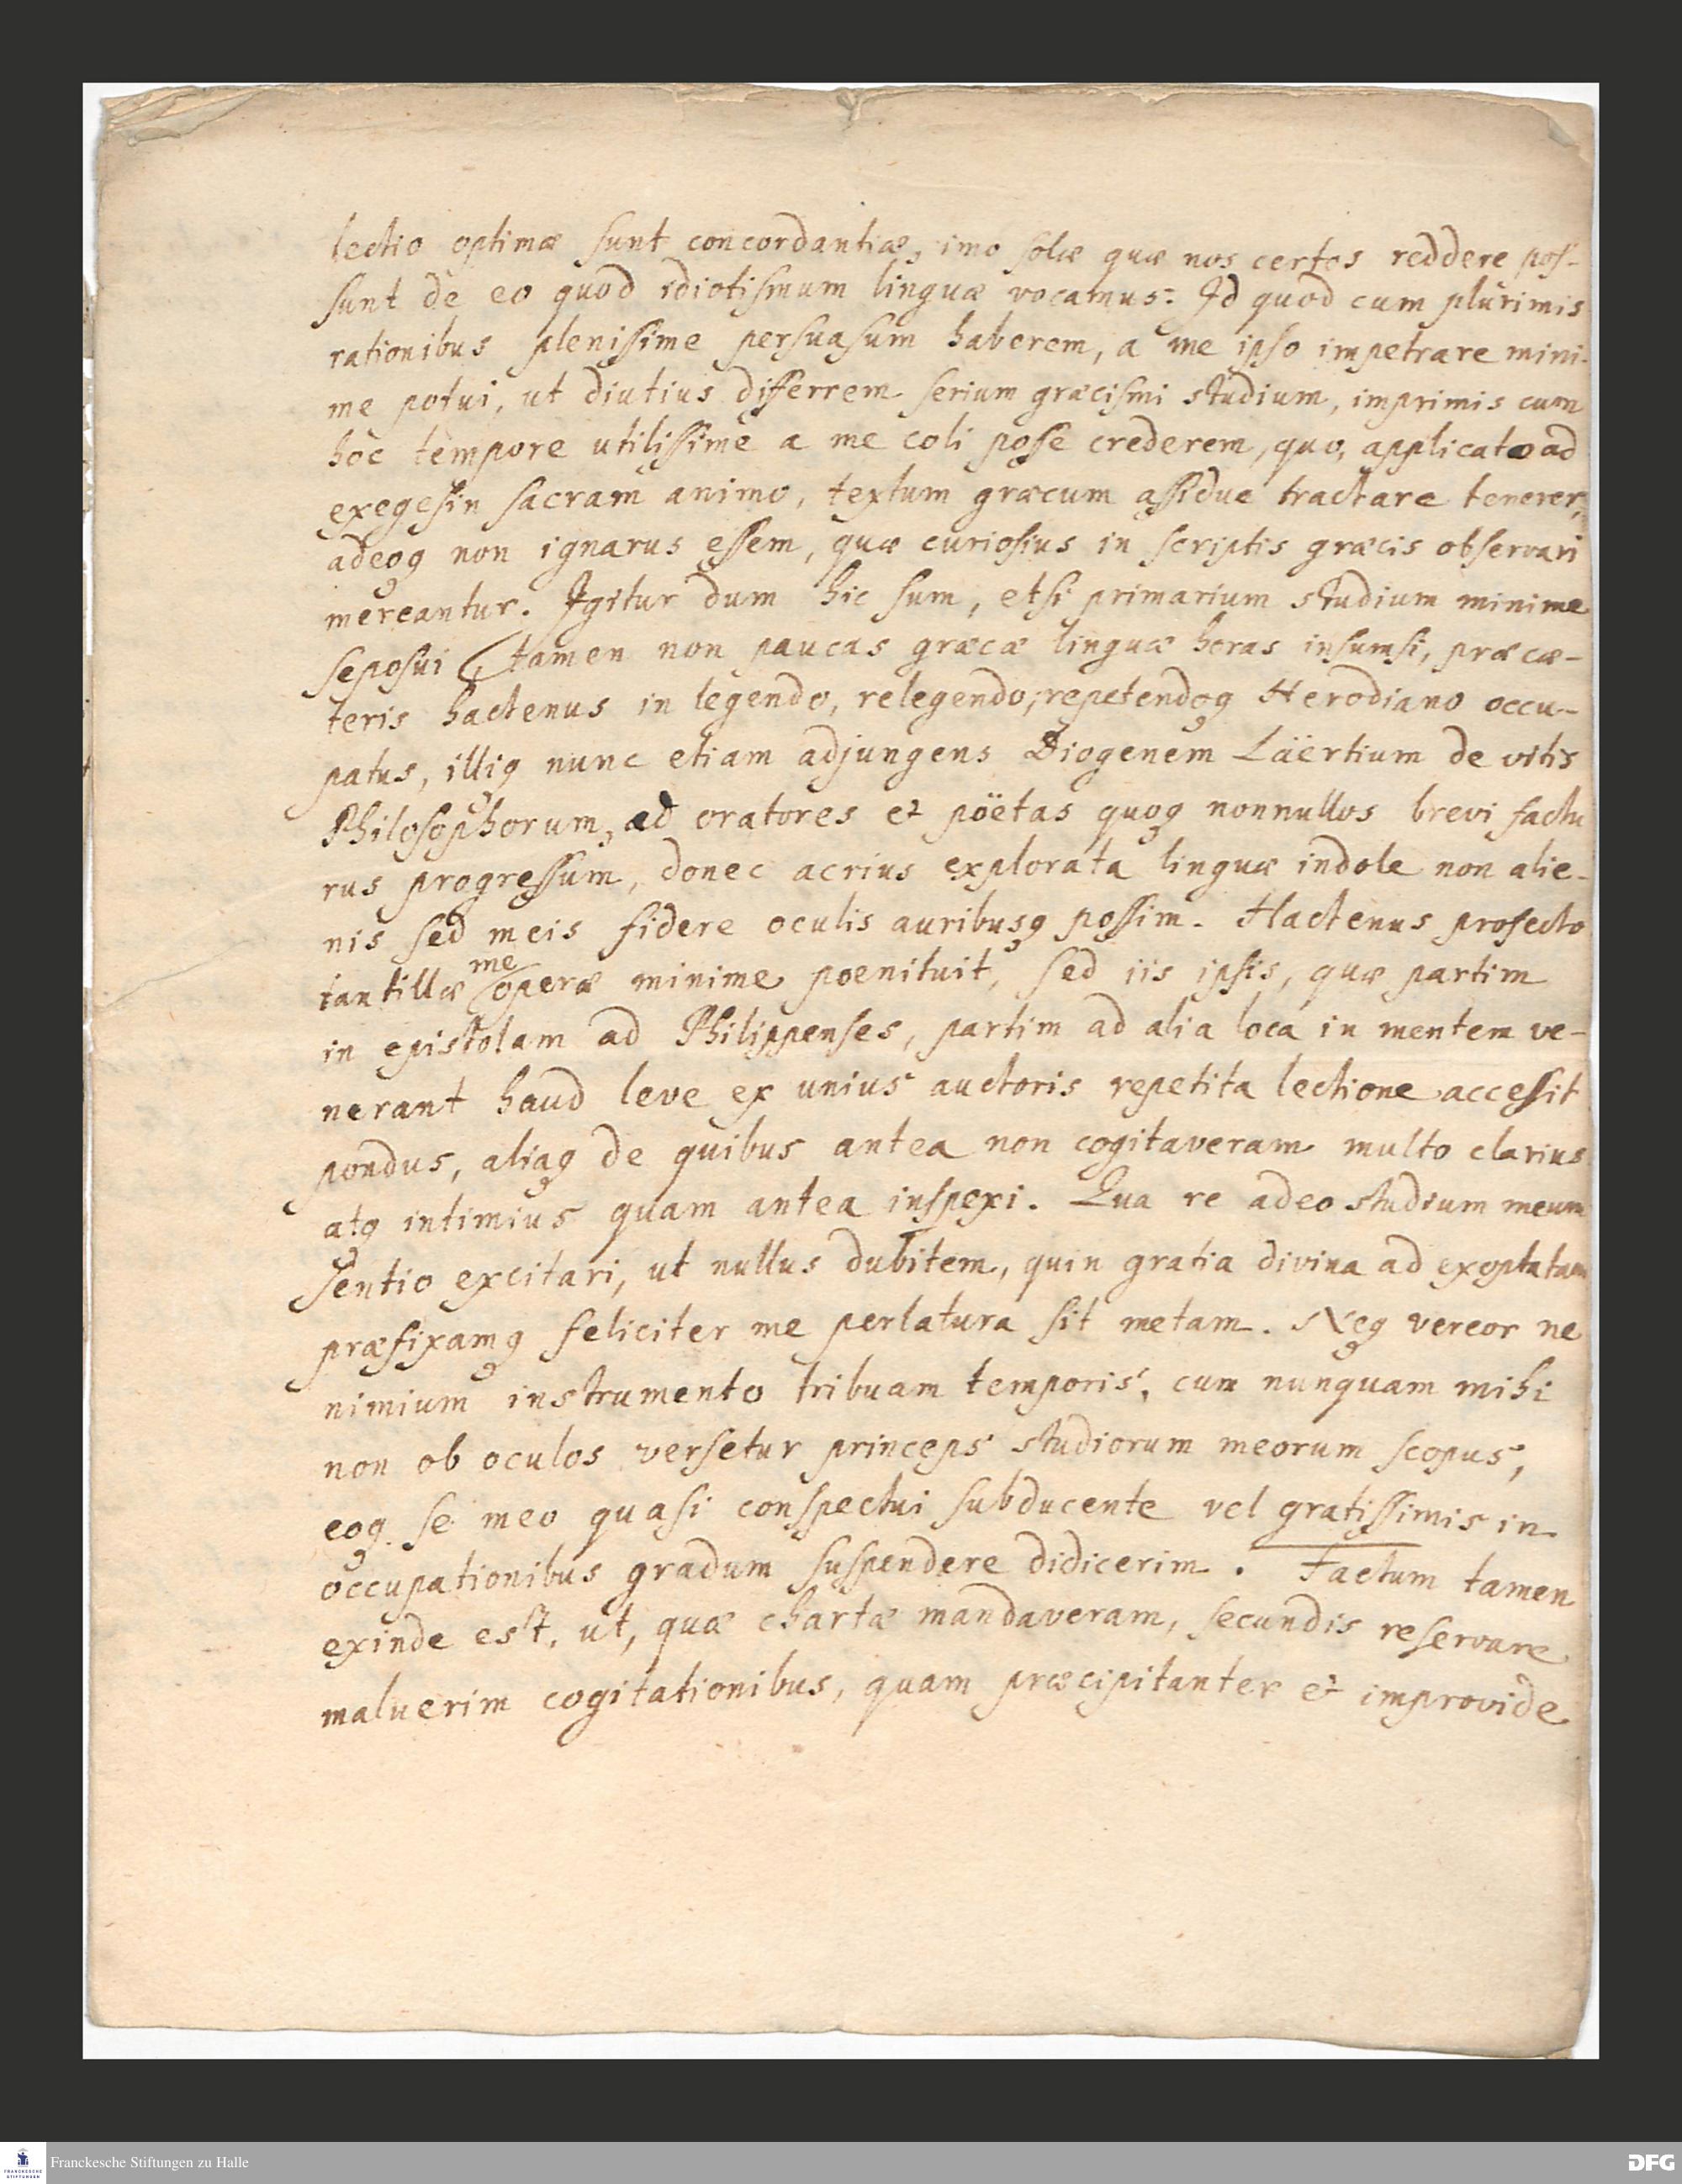 lectio optimæ sunt concordantiæ, imo solæ quæ nos certos reddere pos-
sunt de eo quod idiotismum linguæ vocamus. Id quod cum plurimis
rationibus plenissime persuasum haberem, a me ipso impetrare mini-
me potui, ut diutius differrem serium græcismi studium, imprimis cum
hoc tempore utilissime a me coli posse crederem, quo, applicato ad
exegesin sacram animo, textum græcum assidue tractare tenerer,
adeoq non ignarus essem, quæ curiosius in scriptis græcis observari
mereantur. Igitur dum hic sum, etsi primarium studium minime
seposui, tamen non paucas græcæ linguæ horas insumsi, præ cæ-
teris hactenus in legendo, relegendo, repetendoq Herodiano occu-
patus, illiq nunc etiam adjungens Diogenem Läertium de vitis
Philosophorum, ad oratores et pöetas quoq nonnullos brevi factu
rus progressum, donec acrius explorata linguæ indole non alie-
nis sed meis fidere oculis auribusq possim. Hactenus profecto
tantillæ me operæ minime poenituit, sed iis ipsis, quæ partim
in epistolam ad Philippenses, partim ad alia loca in mentem ve-
nerant haud leve ex unius auctoris repetita lectione accessit
pondus, aliaq de quibus antea non cogitaveram multo clarius
atq intimius quam antea inspexi. Qua re adeo studium meum
sentio excitari, ut nullus dubitem, quin gratia divina ad exoptatam
præfixamq feliciter me perlatura sit metam. Neq vereor ne
nimium instrumento tribuam temporis, cum nunquam mihi
non ob oculos versetur princeps studiorum meorum scopus,
eoq se meo quasi conspectui subducente vel gratissimis in
occupationibus gradum suspendere didicerim. Factum tamen
exinde est, ut, quæ chartæ mandaveram, secundis reservare
maluerim cogitationibus, quam præcipitanter et improvide
FRANCKESCHE STIFTUNGEN
Franckesche Stiftungen zu Halle
DFG